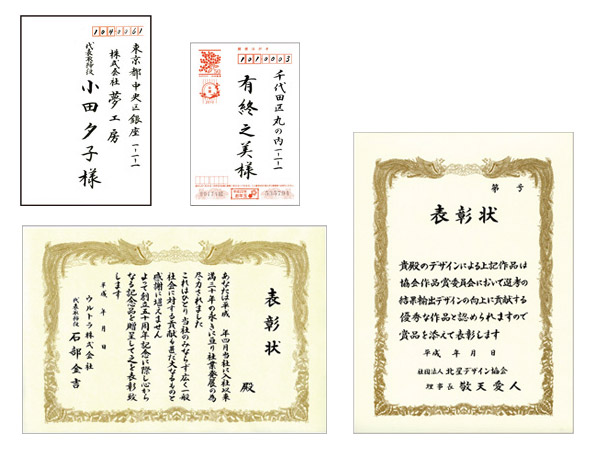 1040061
東京都中央区銀座一-一-一
株式会社 夢工房
代表取締役
小田夕子様
1010003
千代田区丸の内一-一-一
有終之美様
表彰状
殿
あなたは平成 年四月当社に入社以来
満三十年の永きに亘り社業発展の為
尽力されました
これはひとり当社のみならず広く一般
社会に対する貢献も甚だ大なるものと
感謝に堪えません
よって創立五十周年記念に際し心から
なる記念品を贈呈して之を表彰致
します
平成 年 月 日
ウルトラ株式会社
代表取締役 石部金吉
第 号
表彰状
貴殿のデザインによる上記作品は
協会作品賞委員会において選考の
結果輸出デザインの向上に貢献する
優秀な作品と認められますので
賞品を添えて表彰します
平成 年 月 日
社団法人 北星デザイン協会
理事長 敬天愛人